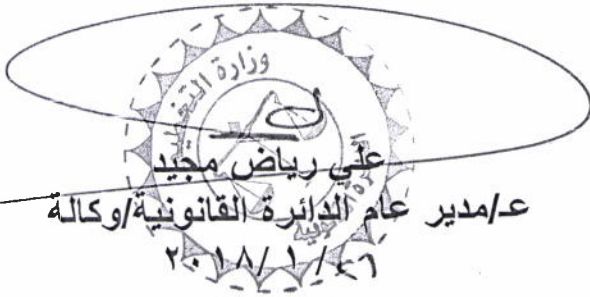 وزارة التخطيط
علي رياض مجيد
عـ/مدير عام الدائرة القانونية/وكالة
٢٠١٨/١/٢٦